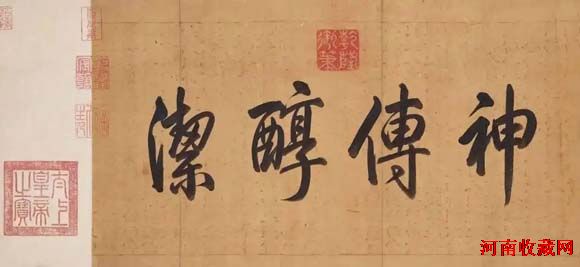 乾隆御筆
神傳醇潔
太上皇帝之寶
河南收藏网